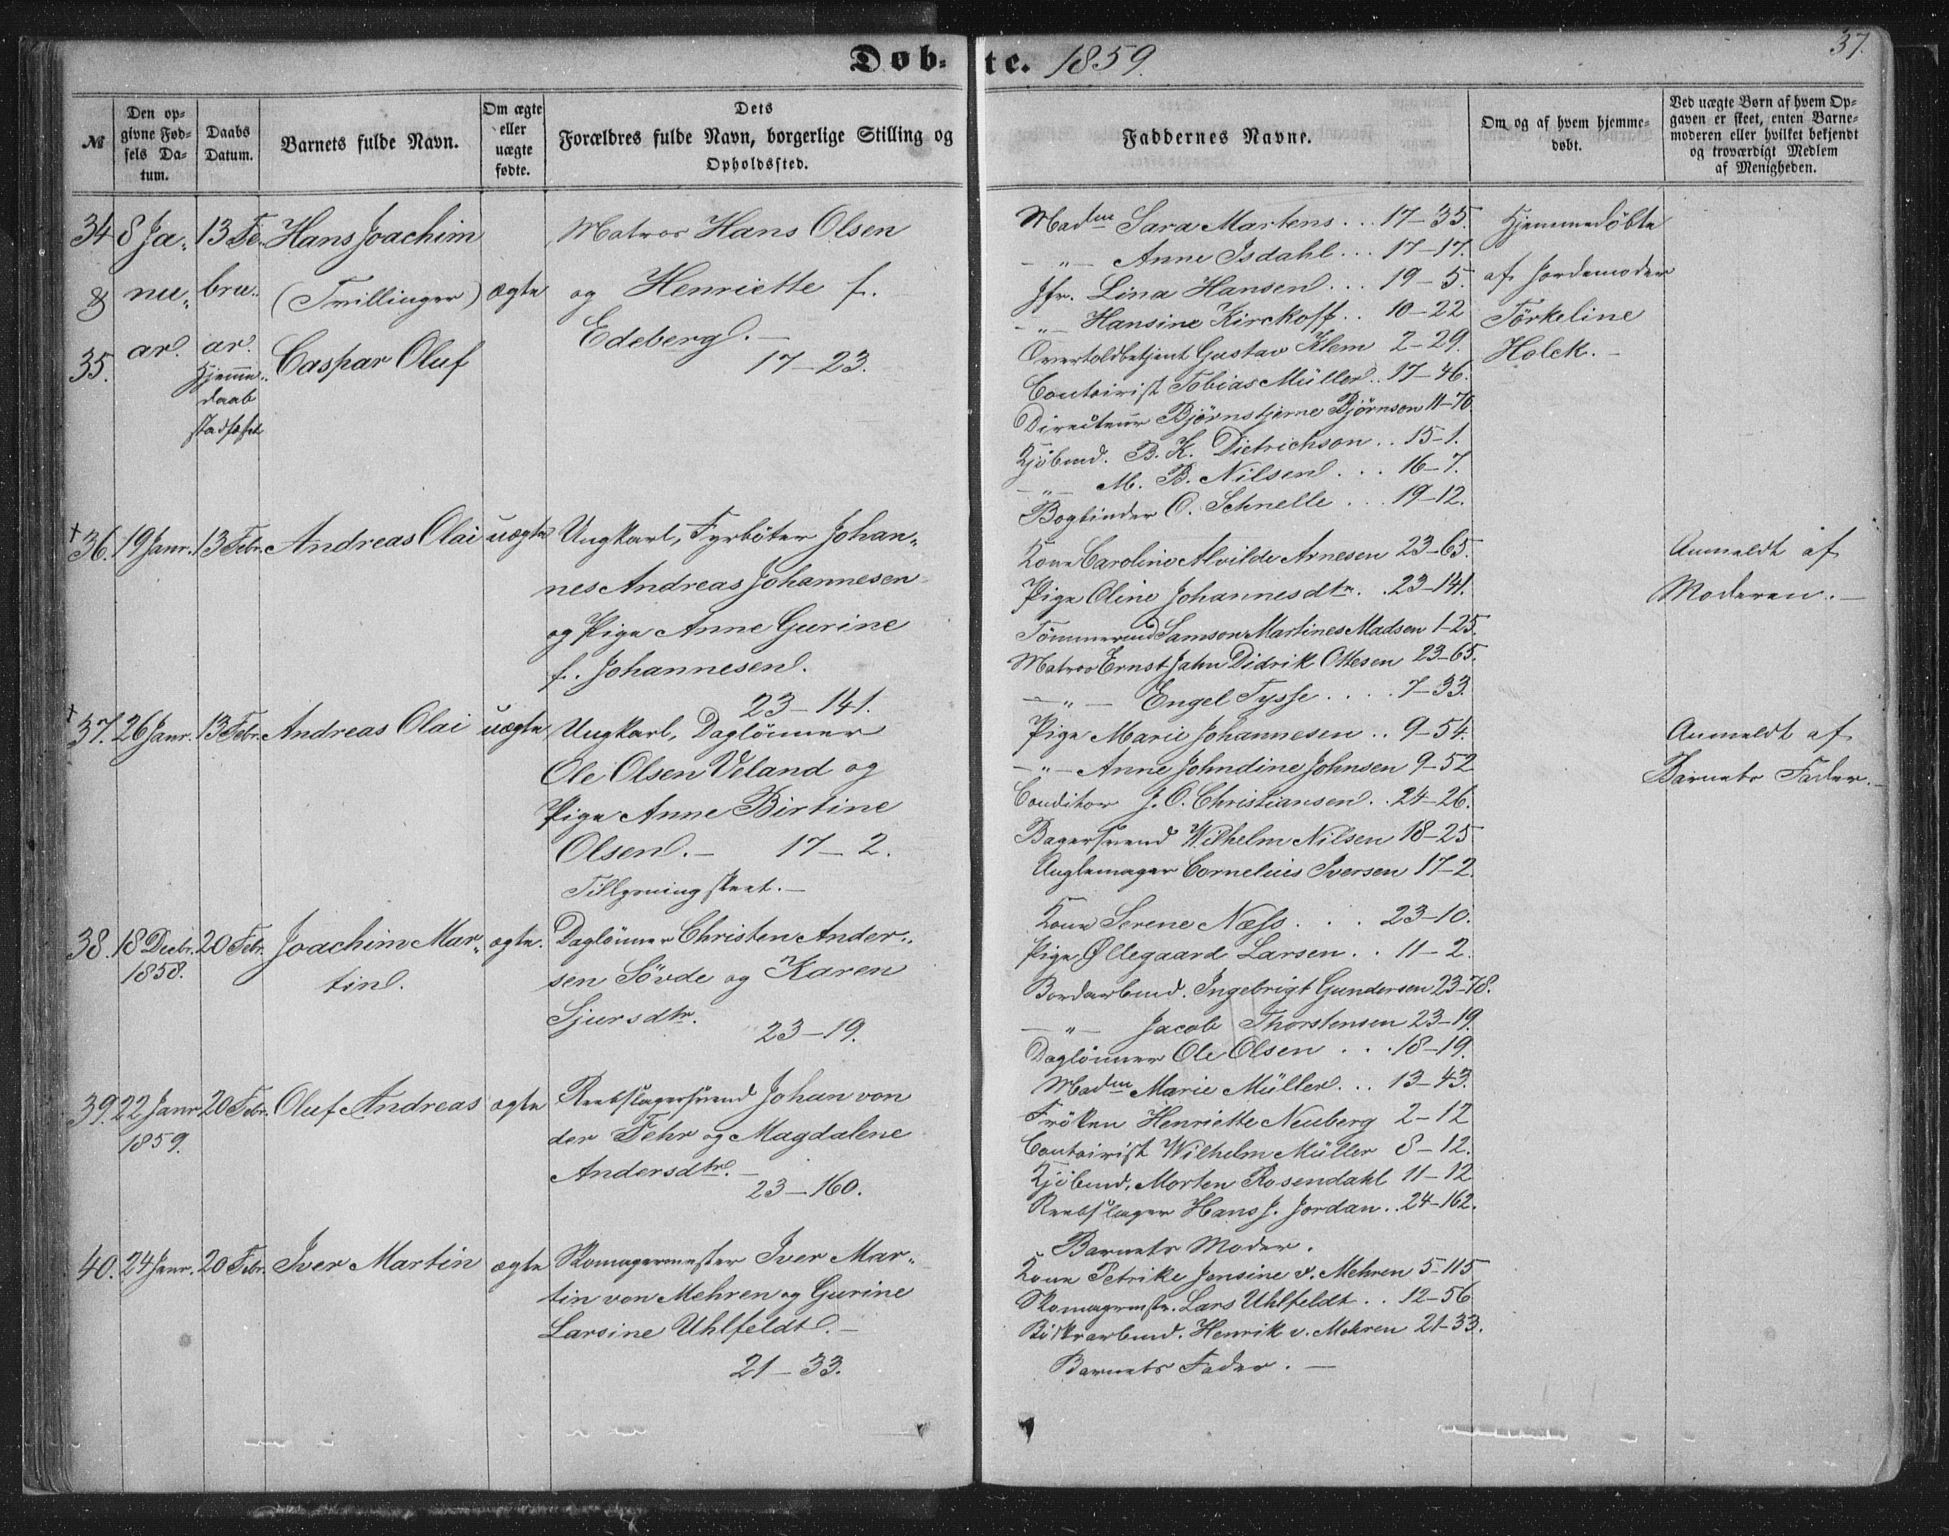 Døb- te. 1859. 37.
№ | Den opgivne Fødsels Datum. | Daabs Datum. | Barnets fulde Navn. | Om ægte eller uægte fødte. | Dets Forældres fulde Navn, borgerlige Stilling og Opholdssted. | Faddernes Navne. | Om og af hvem hjemmedøbt. | Ved uægte Børn af hvem Opgaven er skeet, enten Barnemoderen eller hvilket bekjendt og troværdigt Medlem af Menigheden.
34 8 Ja- 13 Fe- Hans Joachim Matros Hans Olsen
& nu- bru- (Trillinger) ægte og Henriette f.
ar. ar. Edeberg. —
35. Caspar Oluf 17-23.
Hjemme-
daab
stadfæstet
Madm Sara Martens ... 17-35.
-"- Anne Isdahl ... 17-17.
Jfr. Lina Hansen ... 19-5.
-"- Hansine Kirckoff .. 10-22
Overtoldbetjent Gustav Klem 2-29.
Contoirist Tobias Müller .. 17-46.
Directeur Bjørnstjerne Bjørnson 11-70
Kjöbmd. B. K. Dietrichson .. 15-1.
-"- M. B. Nilsen ... 16-7.
Bogbinder O. Schnelle ... 19-12.
Hjemmedöbte
af Jordemoder
Törkeline
Holck. —
+ 36. 19 Janr. 13 Febr. Andreas Olai uægte Ungkarl, Fyrböter Johan-
nes Andreas Johannesen
og Pige Anne Gurine
f. Johannesen.
23-141.
Kone Caroline Alvilde Arnesen 23-65.
Pige Oline Johannesdtr. .. 23-141.
Tömmermd Samson Martines Madsen 1-25.
Matros Ernst Jahn Didrik Ottesen 23-65.
-"- Engel Tysse .... 7-33.
Anmeldt af
Moderen. —
+ 37. 26 Janr. 13 Febr. Andreas Olai uægte Ungkarl, Daglönner
Ole Olsen Veland og
Pige Anne Birtine
Olsen. — 17-2.
Tillysning skeet. —
Pige Marie Johannesen .. 9-54.
-"- Anne Johndine Johnsen 9-52
Conditor J. O. Christiansen .. 24-26.
Bagersvend Wilhelm Nilsen 18-25
Uuglemager Cornelius Iversen 17-2.
Anmeldt af
Barnets Fader. —
38. 18 Decbr. 20 Febr. Joachim Mar- ægte. Daglönner Christen Ander-
1858. tin. sen Sövde og Karen
Sjursdtr.
23-19.
Kone Serene Næss ... 23-10.
Pige Øllegaard Larsen .. 11-2.
Bordarbmd. Ingebrigt Gundersen 23-78.
-"- Jacob Thorstensen 23-19.
Daglönner Ole Olsen ... 18-19.
39. 22 Janr 20 Febr. Oluf Andreas ægte Reebslagersvend Johan von
1859. der Fehr og Magdalene
Andersdtr. —
23-160.
Madm Marie Müller ... 13-43.
Fröken Henriette Neuberg 2-12
Contoirist Wilhelm Müller 8-12.
Kjöbmd. Morten Rosendahl 11-12
Reebslager Hans J. Jordan .. 24-162.
Barnets Moder.
40. 24 Janr. 20 Febr. Iver Martin ægte Skomagermester Iver Mar-
tin von Mehren og Gurine
Larsine Uhlfeldt. —
21-33.
Kone Petrike Jensine v. Mehren 5-115
Skomagermstr. Lars Uhlfeldt .. 12-56
Henrik v. Mehren 21-33.
Barnets Fader. —